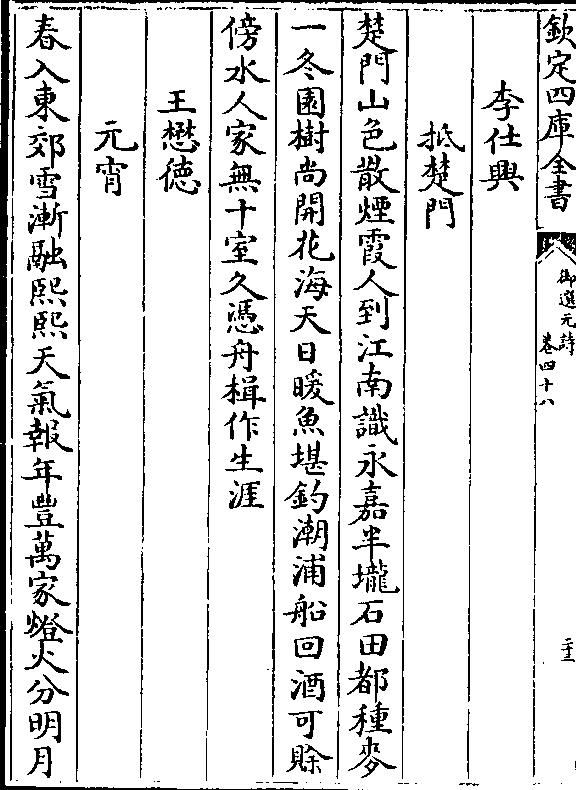 欽定四庫全書
御選元詩
卷四十八
二十三
李仕興
抵楚門
楚門山色散煙霞人到江南識永嘉半壠石田都種麥
一冬園樹尚開花海天日暖魚堪釣潮浦船回酒可賖
傍水人家無十室久憑舟楫作生涯
王懋德
元宵
春入東郊雪漸融熙熙天氣報年豐萬家燈火分明月